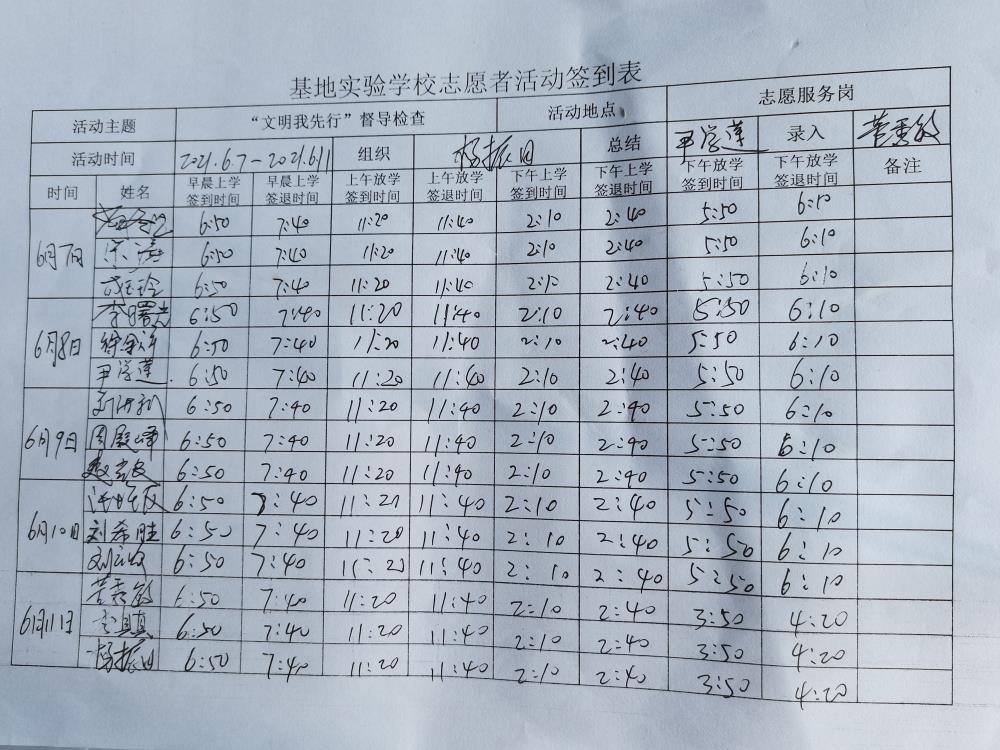 基地实验学校志愿者活动签到表
活动主题 "文明我先行"督导检查 活动地点 志愿服务岗
活动时间 2021.6.7-2021.6.11 组织 杨振日 总结 尹学莲 录入 苦秀敏
时间 姓名 早晨上学签到时间 早晨上学签退时间 上午放学签到时间 上午放学签退时间 下午上学签到时间 下午上学签退时间 下午放学签到时间 下午放学签退时间 备注
6月7日 6:50 7:40 11:20 11:40 2:10 2:40 5:50 6:10
宋涛 6:50 7:40 11:20 11:40 2:10 2:40 5:50 6:10
6:50 7:40 11:20 11:40 2:10 2:40 5:50 6:10
6月8日 李曙光 6:50 7:40 11:20 11:40 2:10 2:40 5:50 6:10
6:50 7:40 11:20 11:40 2:10 2:40 5:50 6:10
尹学莲 6:50 7:40 11:20 11:40 2:10 2:40 5:50 6:10
6月9日 6:50 7:40 11:20 11:40 2:10 2:40 5:50 6:10
周殿峰 6:50 7:40 11:20 11:40 2:10 2:40 5:50 6:10
6:50 7:40 11:20 11:40 2:10 2:40 5:50 6:10
6月10日 6:50 7:40 11:21 11:40 2:10 2:40 5:50 6:10
刘希胜 6:50 7:40 11:20 11:40 2:10 2:40 5:50 6:10
6:50 7:40 11:20 11:40 2:10 2:40 5:50 6:10
6月11日 苦秀敏 6:50 7:40 11:20 11:40 2:10 2:40 3:50 4:20
6:50 7:40 11:20 11:40 2:10 2:40 3:50 4:20
杨振日 6:50 7:40 11:20 11:40 2:10 2:40 3:50 4:20